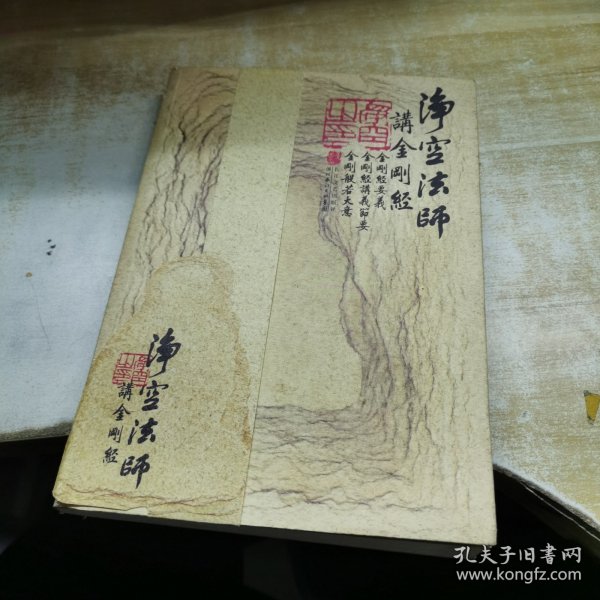 淨空法師
講金剛經
金剛經要義
金剛經講義節要
金剛般若大意
淨空法師
講金剛經
孔夫子旧书网
www.kongfz.com